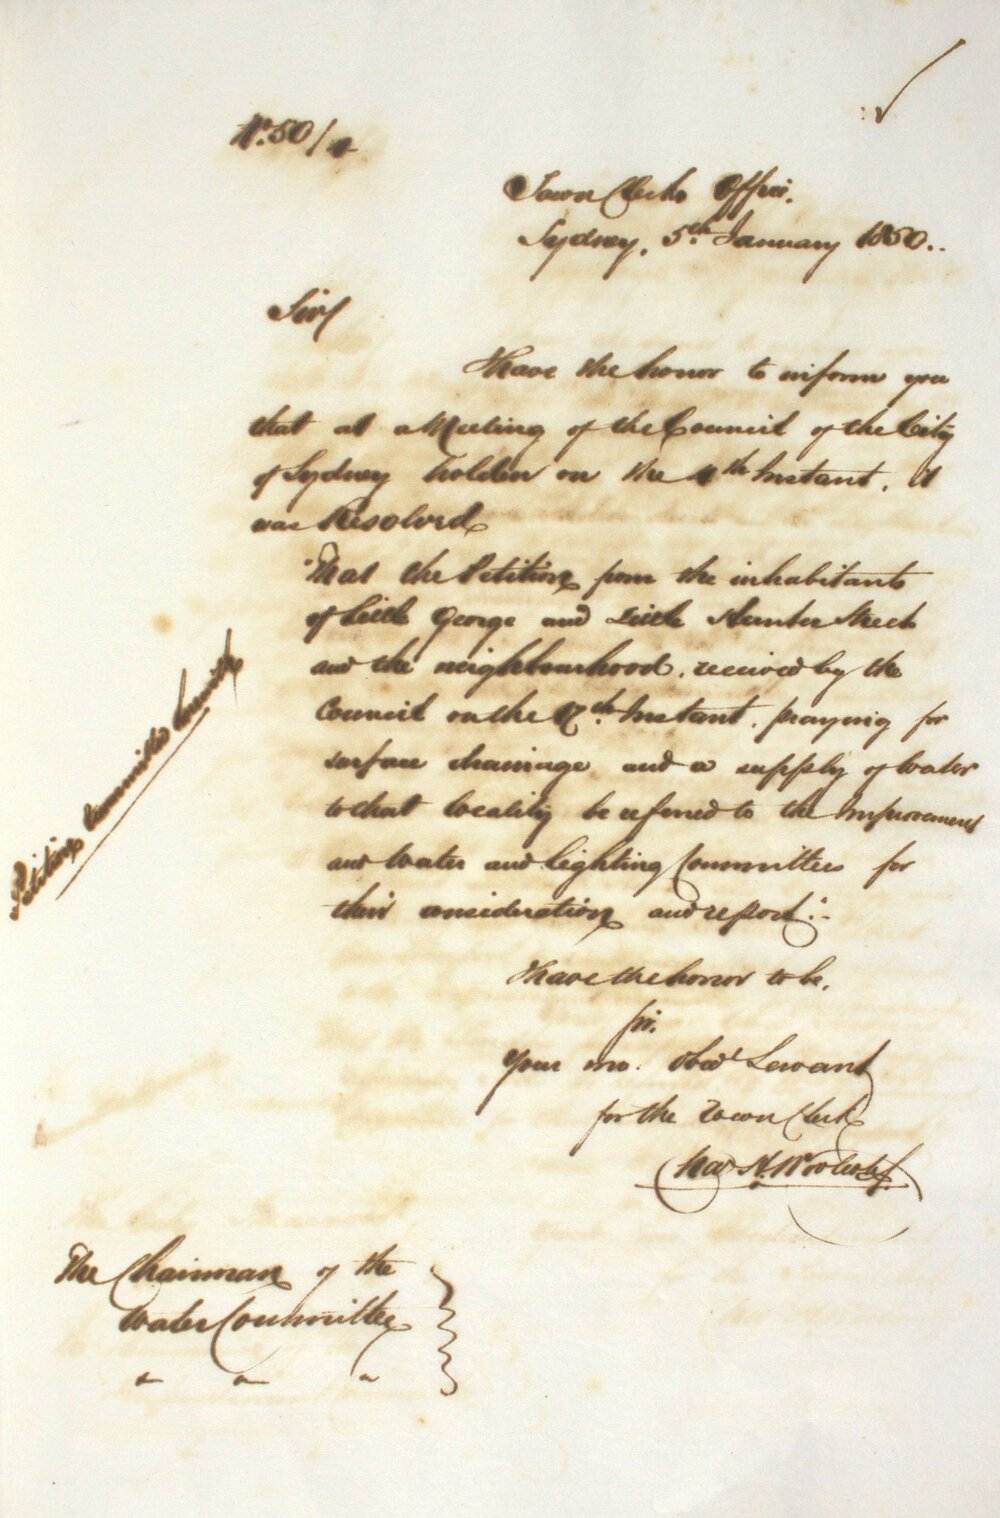 No. 50/
Town Clerks Office.
Sydney, 5th January 1850..
Sir/
I have the honor to inform you
that at a Meeting of the Council of the City
of Sydney holden on the 4th Instant, it
was Resolved
"That the Petition from the inhabitants
of Little George and Little Hunter Street
and the neighbourhood, received by the
Council on the Instant, praying for
surface drainage and a supply of Water
to that locality be referred to the Improvement
and Water and Lighting Committees for
their consideration and report."-
Petition Committee
I have the honor to be,
Sir,
Your mo. Obed Servant
for the Town Clerk
The Chairman of the
Water Committee
" " "